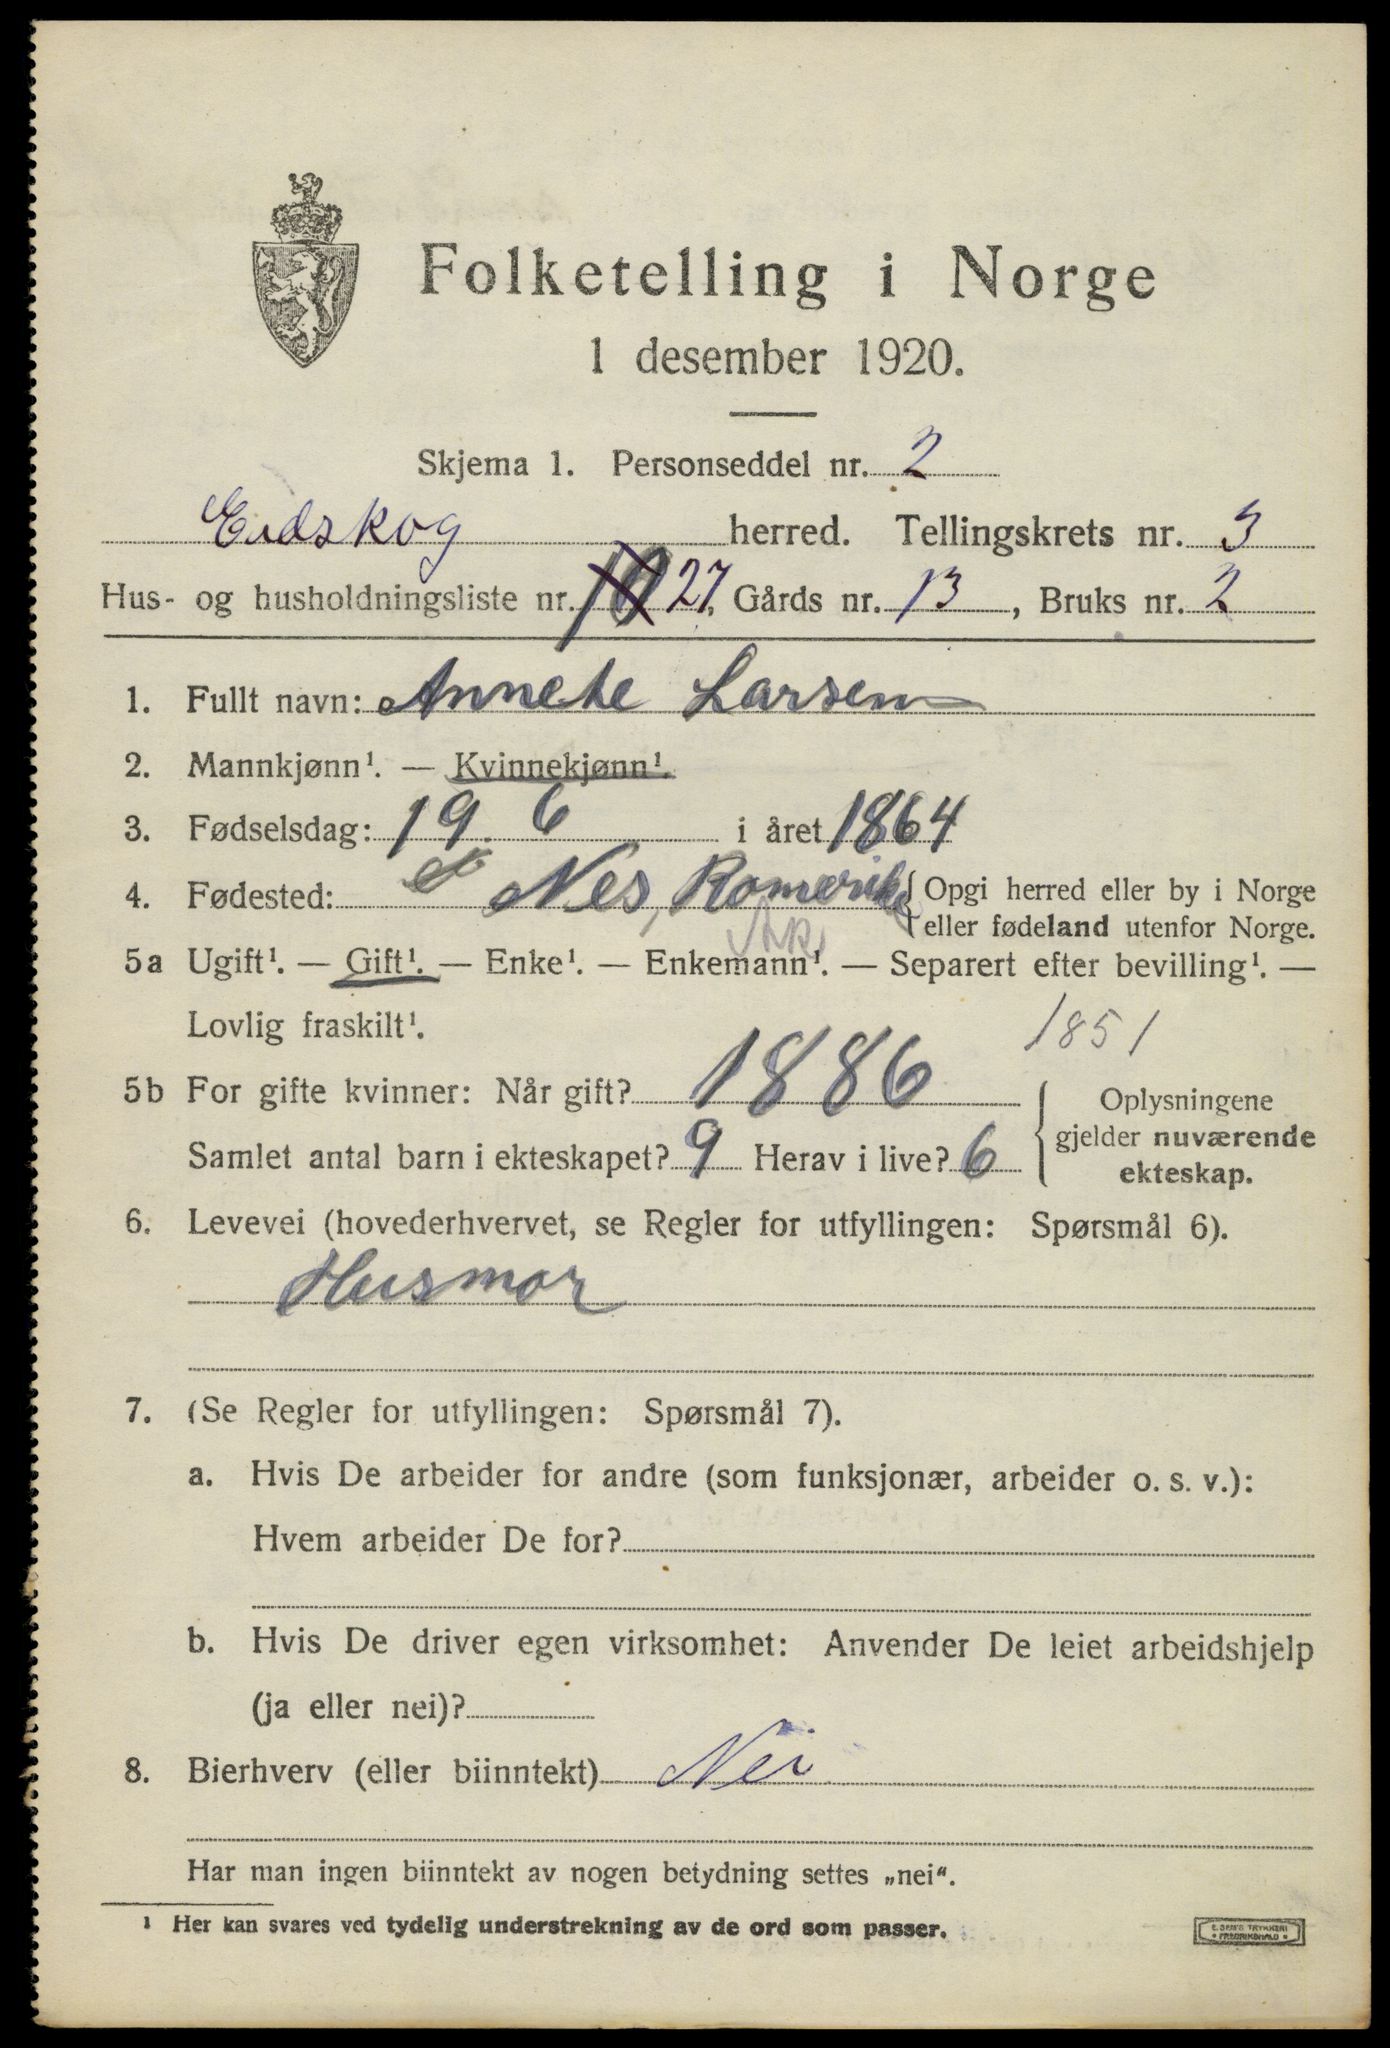 Folketelling i Norge
1 desember 1920.
Skjema 1. Personseddel nr. 2
Eidskog herred. Tellingskrets nr. 3
Hus- og husholdningsliste nr. 10 27, Gårds nr. 13, Bruks nr. 2
1. Fullt navn: Annete Larsen
2. Mannkjønn¹. — Kvinnekjønn¹.
3. Fødselsdag: 19. 6 i året 1864
4. Fødested: Nes, Romerike { Opgi herred eller by i Norge
eller fødeland utenfor Norge.
Ak.
5a Ugift¹. — Gift¹. — Enke¹. — Enkemann¹. — Separert efter bevilling¹. —
Lovlig fraskilt¹.
1851
5b For gifte kvinner: Når gift? 1886 { Oplysningene
gjelder nuværende
ekteskap.
Samlet antal barn i ekteskapet? 9 Herav i live? 6
6. Levevei (hovederhvervet, se Regler for utfyllingen: Spørsmål 6).
Husmor
7. (Se Regler for utfyllingen: Spørsmål 7).
a. Hvis De arbeider for andre (som funksjonær, arbeider o. s. v.):
Hvem arbeider De for?
b. Hvis De driver egen virksomhet: Anvender De leiet arbeidshjelp
(ja eller nei)?
8. Bierhverv (eller biinntekt) Nei
Har man ingen biinntekt av nogen betydning settes „nei“.
¹ Her kan svares ved tydelig understrekning av de ord som passer.
E. SEM'S TRYKKERI
• FREDRIKSHALD •